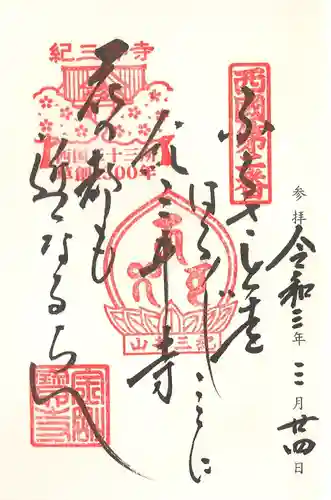 参拝 令和三年 三月廿四日
西國第二番
ふるさとを
はるばるここに
紀三井寺
花の都も
近くなるらん
紀三井寺
西国三十三所
草創1300年
紀三井山
金剛
寶寺